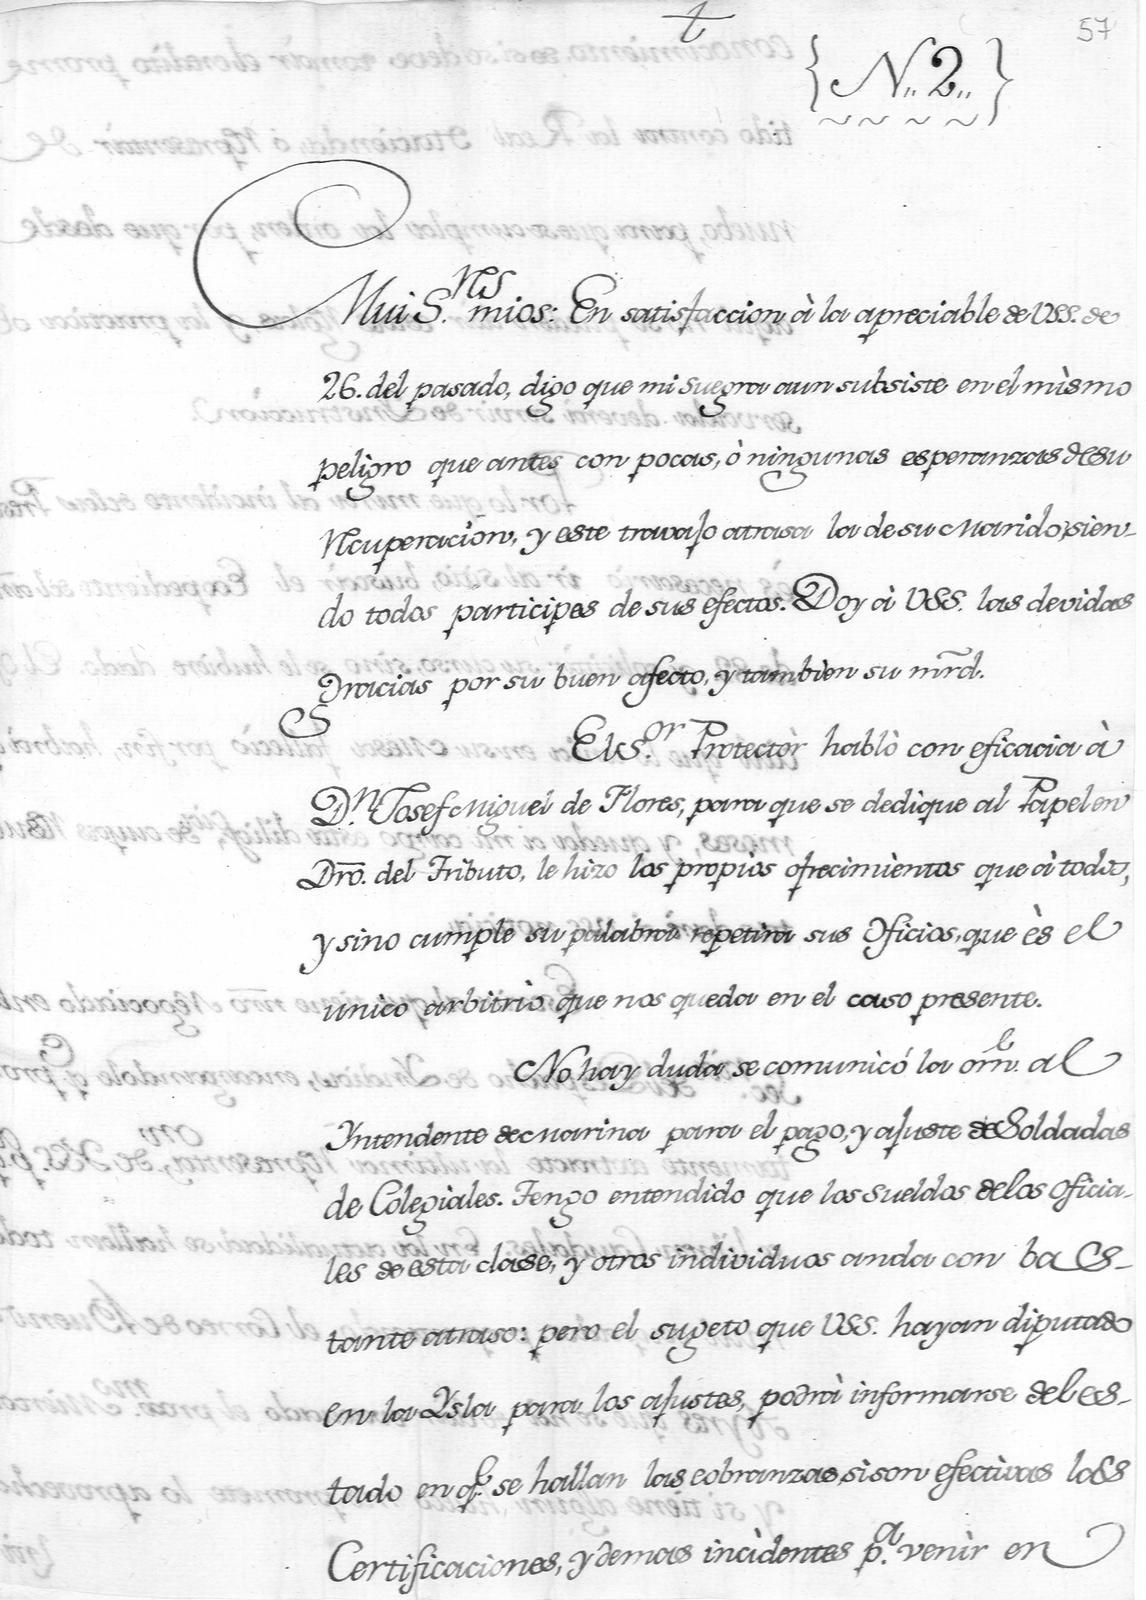 57
{N,, 2,,}
Mui S.res mios: En satisfaccion à la apreciable de VSS. de
26. del pasado, digo que mi suegra aun subsiste en el mismo
peligro que antes con pocas, ò ningunas esperanzas de su
Recuperacion, y este travajo atrasa la de su Marido, sien-
do todos participes de sus efectos. Doy à VSS. las devidas
Gracias por su buen afecto, y tambien su mrd.
El S.or Protector hablò con eficacia à
D.n Josef Miguel de Flores, para que se dedique al Papel en
Dro. del Tributo, le hizo los propios ofrecimientos que à todos,
y sino cumple su palabra repetira sus Oficios, que ès el
unico arbitrio que nos queda en el caso presente.
No hay duda se comunicó la orn. al
Yntendente de Marina para el pago, y ajuste de Soldadas
de Colegiales. Tengo entendido que los sueldos de los oficia-
les de esta clase, y otros individuos anda con bas-
tante atraso: pero el sugeto que VSS. hayan diputado
en la Ysla para los ajustes, podrà informarse del es-
tado en q.e se hallan las cobranzas, si son efectivas las
Certificaciones, y demas incidentes p.a venir en